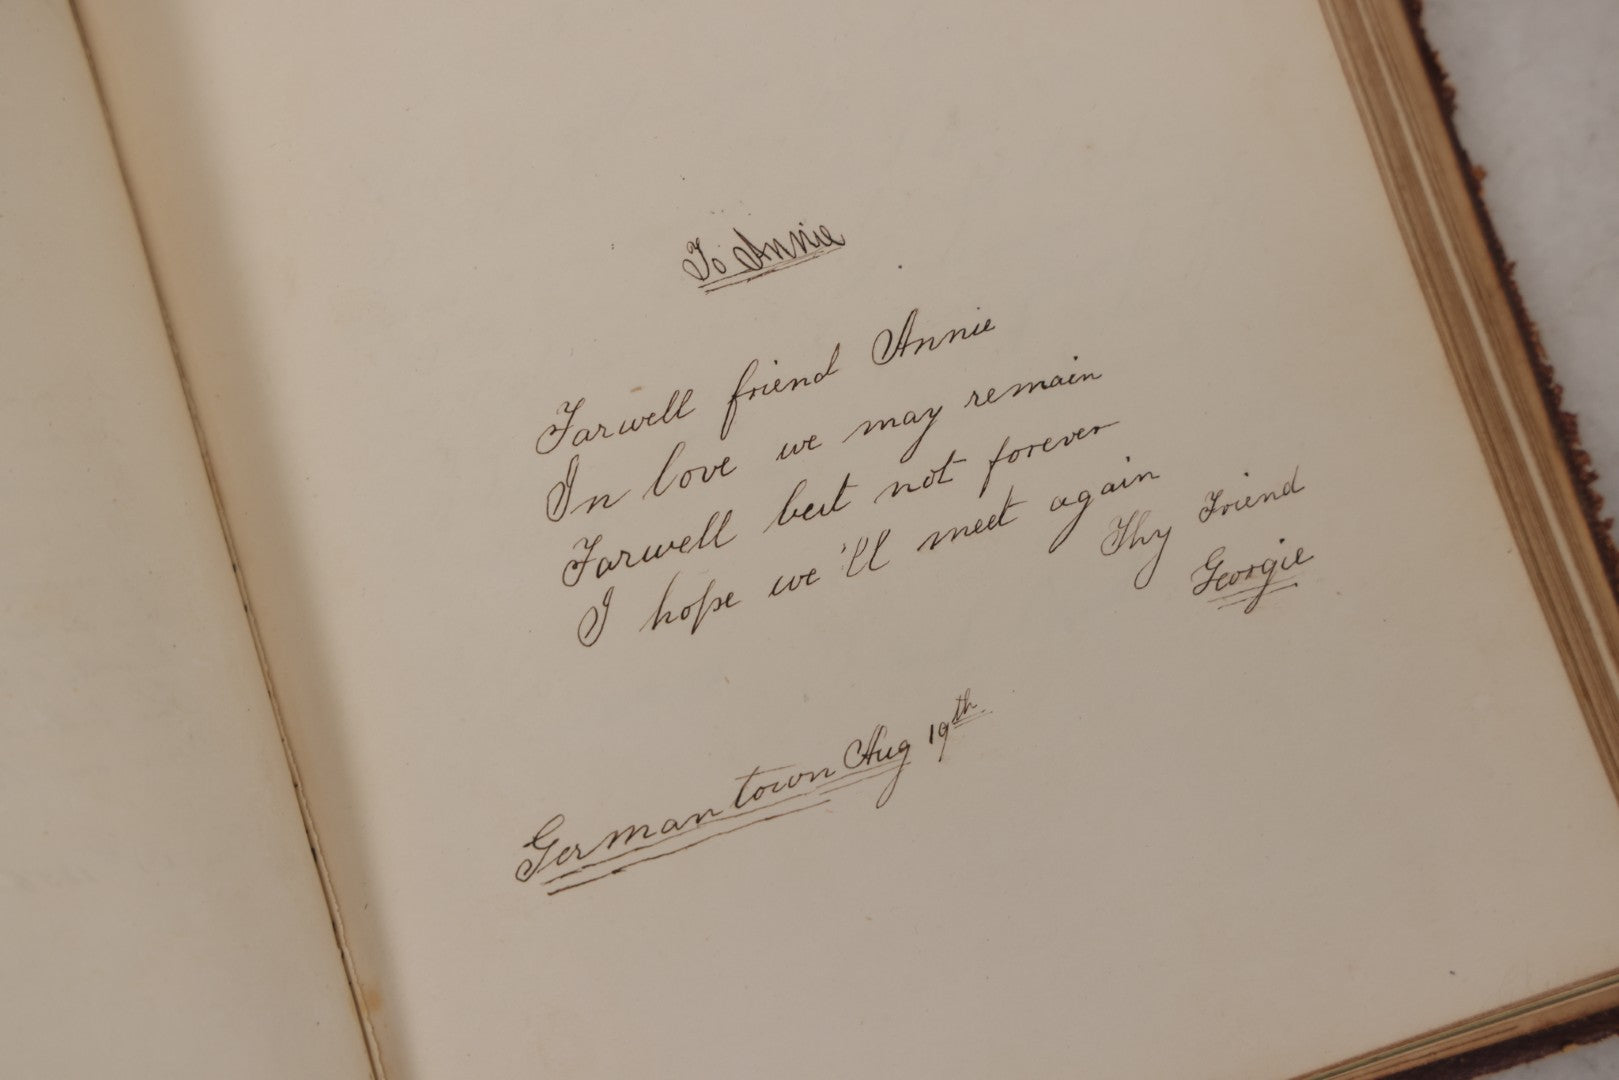 To Annie
Farwell friend Annie
In love we may remain
Farwell but not forever
I hope we'll meet again
Thy Friend
Georgie
Germantown Aug 19th